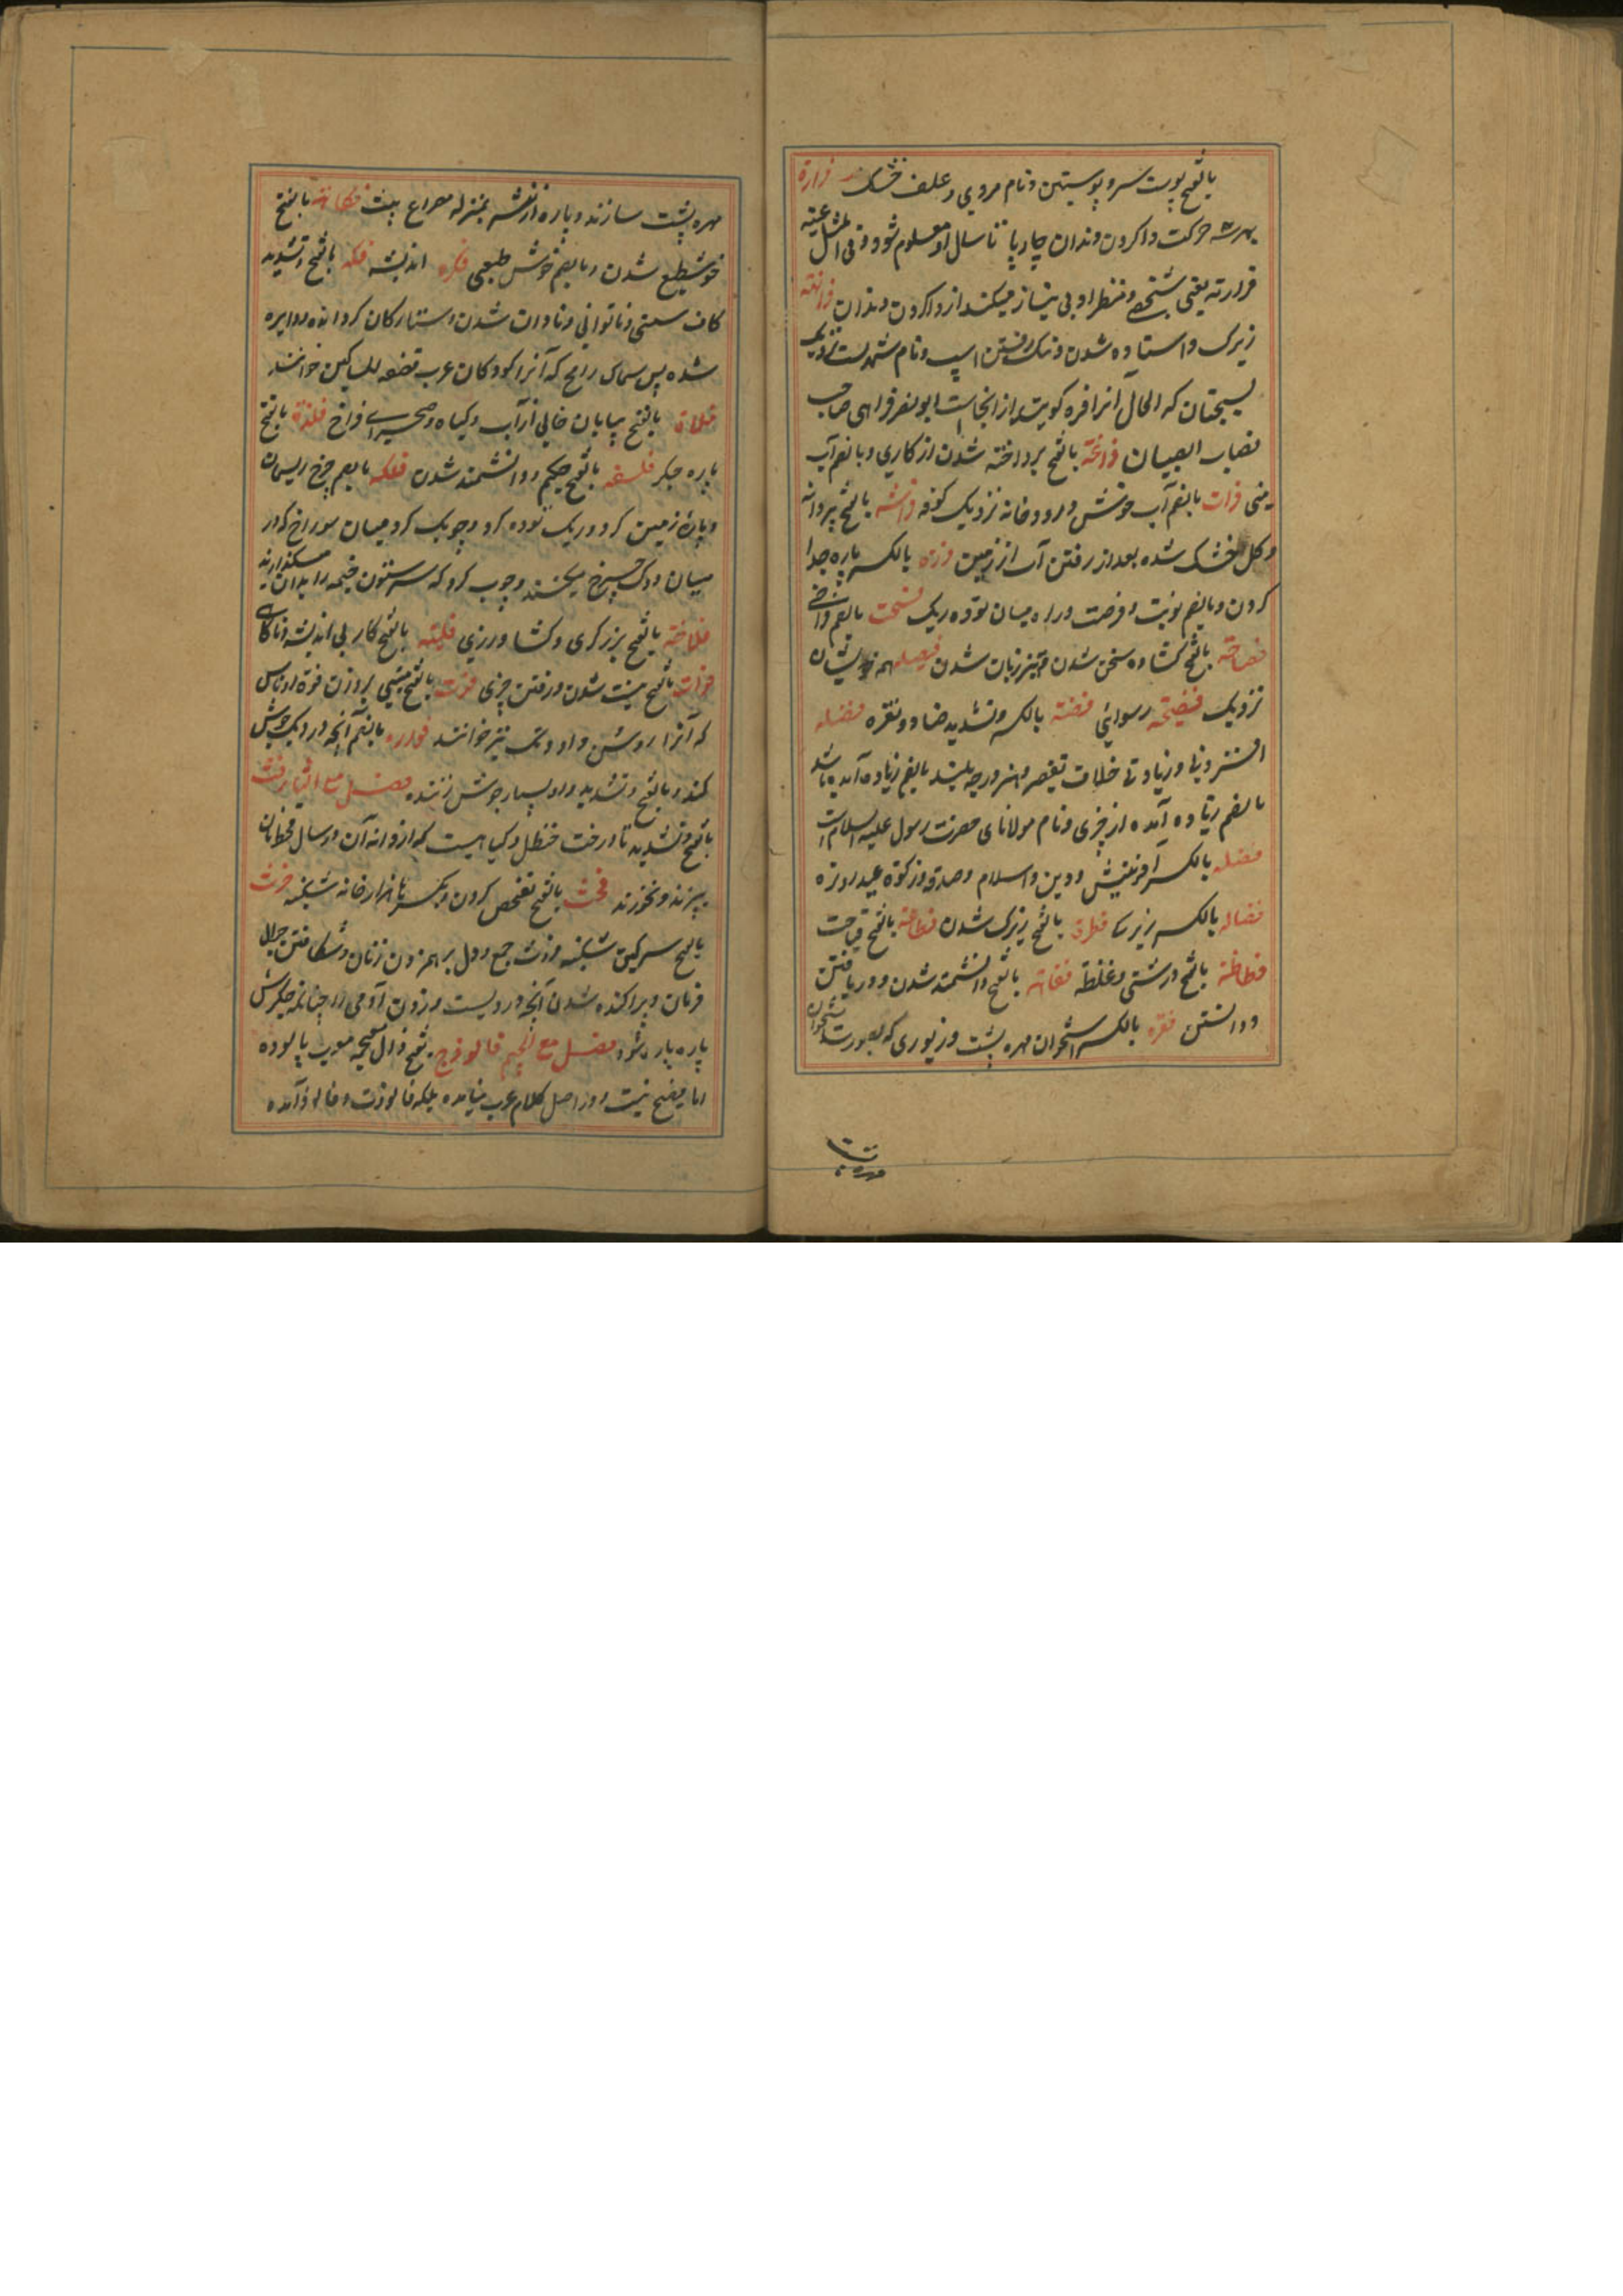 بالفتح پوست سر و پوستین و نام مردی و علف خشک فرارة
بهر سه حرکت واکردن دندان چارپا تا سال او معلوم شود و فی المثل عینه
فراره یعنی شخصی و منظر او بی نیاز میکند از واکردن دندان فراهة
زیرک و استاده شدن و نیک رفتن اسپ و نام شهریست نزدیک
سیستان که الحال آنرا فره گویند از انجاست ابو نصر فراهی صاحب
نصاب الصبیان فراغة بالفتح پرداخته شدن از کاری و بالضم آب
منی فرات بالضم آب خوش و رودخانه نزدیک کوفه فراشه بالفتح پروانه
و گل خشک شده بعد از رفتن آب از زمین فرزه بالکسر پاره جدا
کردن و بالضم نوبت و فرصت و راه میان توده ریک فسحت بالضم فراخی
فصاحة بالفتح گشاده سخن شدن و تیز زبان شدن فصیله همه خویشان
نزدیک فضیحه رسوائی فضة بالکسر و تشدید ضاد و نقره فضله
افزونی و زیادتی خلاف نقیصه و هنر و درجه بلند بالضم زیاده آمده باشد
بالضم زیاده آمده از چیزی و نام مولانای حضرت رسول علیه السلام است
فضله بالکسر آفرینش و دین و اسلام و صدقه و زکوة عید روزه
فضاله بالکسر زیرسا فطرة بالفتح زیرک شدن فظاعة بالفتح قباحت
فظاظة بالفتح درشتی و غلظة فقاهة بالفتح دانشمند شدن و دریافتن
و دانستن فقره بالکسر استخوان مهره پشت و زیوری که بصورت استخوان
مهره پشت
مهره پشت سازند و پاره از نثر بمنزله مصراع بیت فکاهة بالفتح
خوشطبع شدن و بالضم خوش طبعی فکره اندیشه فکه بالفتح و تشدید
کاف سستی و ناتوانی و نادان شدن و ستارگان گرد آمده و دایره
شده پس سماک رامح که آنرا کودکان عرب قصعه المساکین خوانند
فلاة بالفتح بیابان خالی از آب و گیاه و صحرای فراخ فلذة بالفتح
پاره جگر فلسفه بالفتح حکیم و دانشمند شدن فلکه بالضم چرخ ریسمان
و پاره زمین گرد و ریک توده گرد و چوبک گرد میان سوراخ که در
میان دوک چرخ میکنند و چوب گرد که سر ستون خیمه را بدان میگذارند
فلاحة بالفتح بزرگری و کشاورزی فلتة بالفتح کار بی اندیشه و ناگاه
فوات بالفتح نیست شدن و رفتن چیزی فوت بالفتح
که آنرا روشن و او و تک نیز خوانند فواره بالضم آنچه در دیک جوش
کند و بالفتح و تشدید واو بسیار جوش زننده فصل مع الثا فث
بالفتح و تشدید ثا درخت حنظل و گیاهیست که از دانه آن در سال قحط نان
پزند و بخورند فحث بالفتح تفحص کردن و بکسر حا هزارخانه شکنبه فرث
بالفتح سرگین شکنبه فروث جمع و دل برهم زدن زنان و شکافتن جوال
فرمان و پراکنده شدن آنچه در ویست و زدن آدمی را چنانکه جگرش
پاره پاره شود فصل مع الجیم فالوذج بفتح ذال معجمه معرب پالوده
اما فصیح نیست و در اصل کلام عرب نیامده بلکه فالوذت و فالوذ آمده